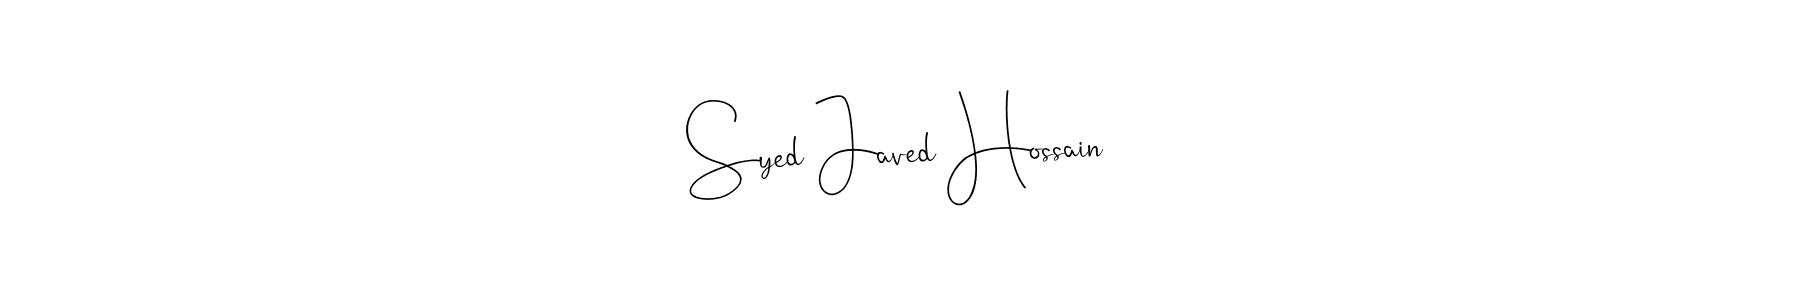 Syed Javed Hossain